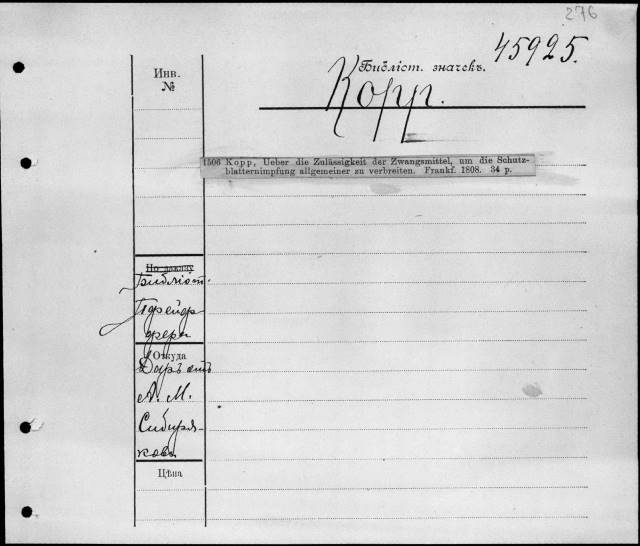 276
45925.
Библіот. значекъ.
Инв.
№
Kopp.
1506 Kopp, Ueber die Zulässigkeit der Zwangsmittel, um die Schutz-
blatternimpfung allgemeiner zu verbreiten. Frankf. 1808. 34 p.
По заказу
Библіот.
Пфейф-
фера
Откуда
Даръ отъ
А. М.
Сибиря-
кова
Цѣна